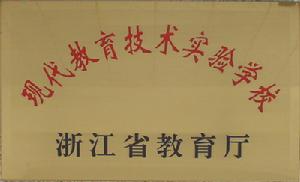 现代教育技术实验学校
浙江省教育厅